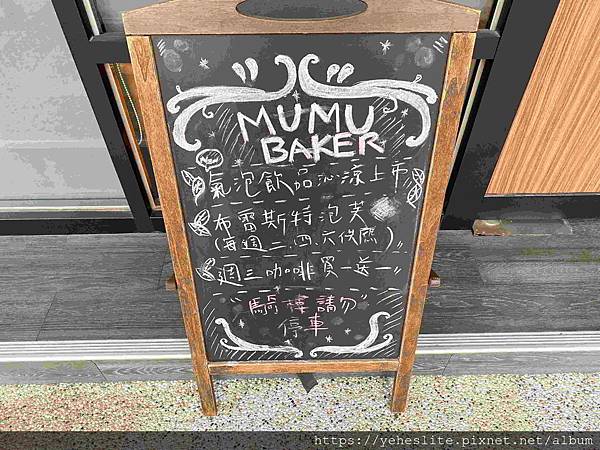 MUMU
BAKER
氣泡飲品沁涼上市
布雷斯特泡芙
(每週二.四.六供應)
週三咖啡買一送一
"騎樓請勿"
停車
https://yeheslite.pixnet.net/album